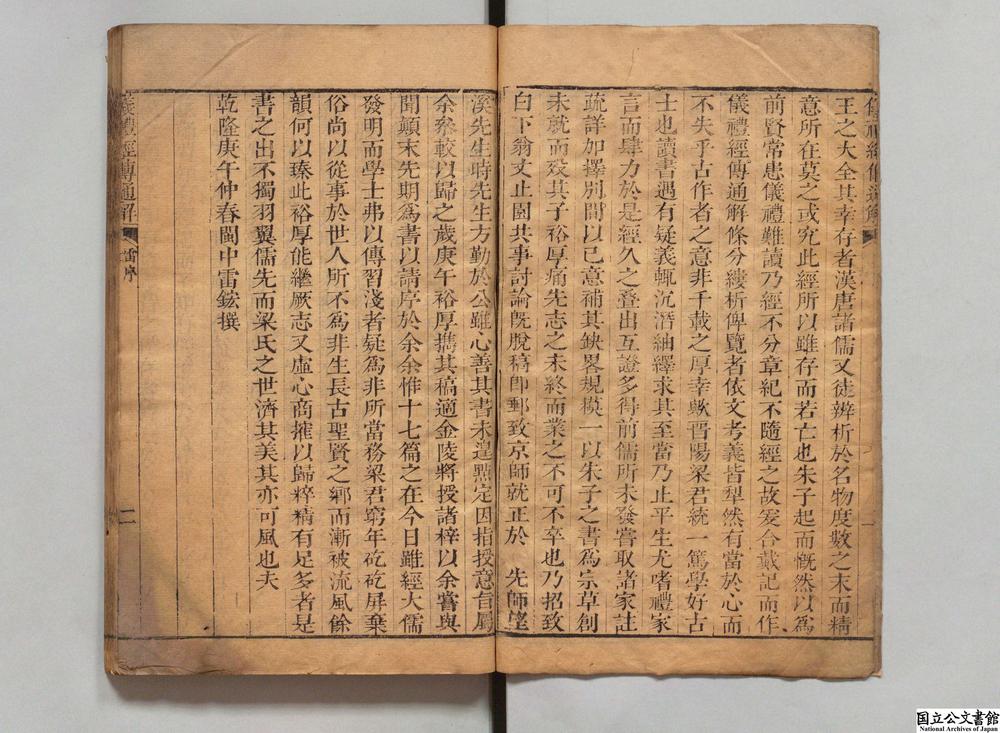 王之大全其幸存者漢唐諸儒又徒辨析於名物度數之末而精
意所在莫之或究此經所以雖存而若亡也朱子起而慨然以為
前賢常患儀禮難讀乃經不分章紀不隨經之故爰合戴記而作
儀禮經傳通解條分縷析俾覽者依文考義皆犁然有當於心而
不失乎古作者之意非千載之厚幸歟晋陽梁君統一篤學好古
士也讀書遇有疑義輒沉潛紬繹求其至當乃止平生尤嗜禮家
言而肆力於是經久之叠出互證多得前儒所未發嘗取諸家註
疏詳加擇別間以己意補其缺畧規模一以朱子之書為宗草創
未就而歿其子裕厚痛先志之未終而業之不可不卒也乃招致
白下翁丈止園共事討論旣脫稿卽郵致京師就正於 先師望
溪先生時先生方勤於公雖心善其書未遑點定因指授意旨屬
余叅較以歸之歲庚午裕厚攜其稿適金陵將授諸梓以余嘗與
聞顛末先期為書以請序於余余惟十七篇之在今日雖經大儒
發明而學士弗以傳習淺者疑為非所當務梁君窮年矻矻屏棄
俗尚以從事於世人所不為非生長古聖賢之鄉而漸被流風餘
韻何以臻此裕厚能繼厥志又虛心商搉以歸粹精有足多者是
書之出不獨羽翼儒先而梁氏之世濟其美其亦可風也夫
乾隆庚午仲春閩中雷鋐撰
儀禮經傳通解
雷序
二
国立公文書館
National Archives of Japan